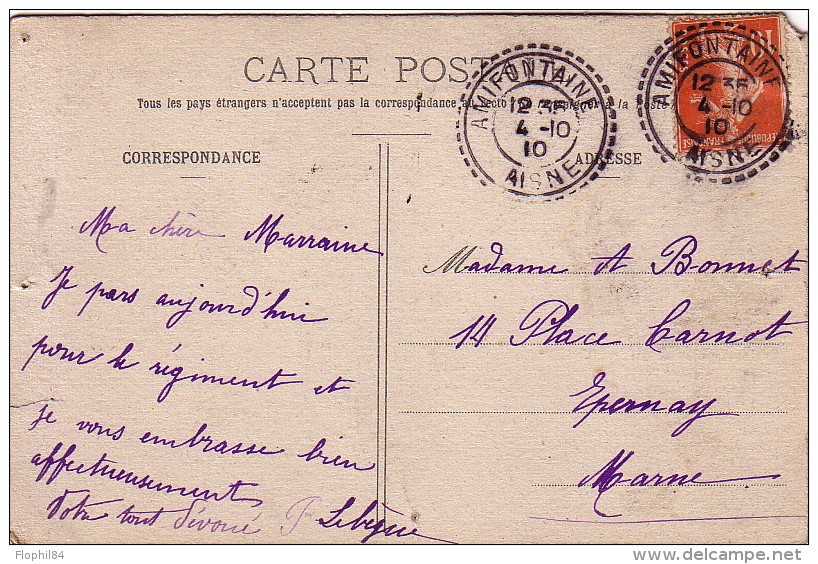 CARTE POST
Tous les pays étrangers n'acceptent pas la correspondance au recto
à la Poste
CORRESPONDANCE
ADRESSE
AMIFONTAINE
12 35
4 -10
10
AISNE
AMIFONTAINE
12 35
4 -10
10
AISNE
10
RÉPUBLIQUE FRANÇAISE
Ma chère Marraine
Je pars aujourd'hui
pour le régiment et
je vous embrasse bien
affectueusement
Votre tout dévoué P Lebègue
Madame A Bonnet
14 Place Carnot
Epernay
Marne
Flophil84
delcampe.net